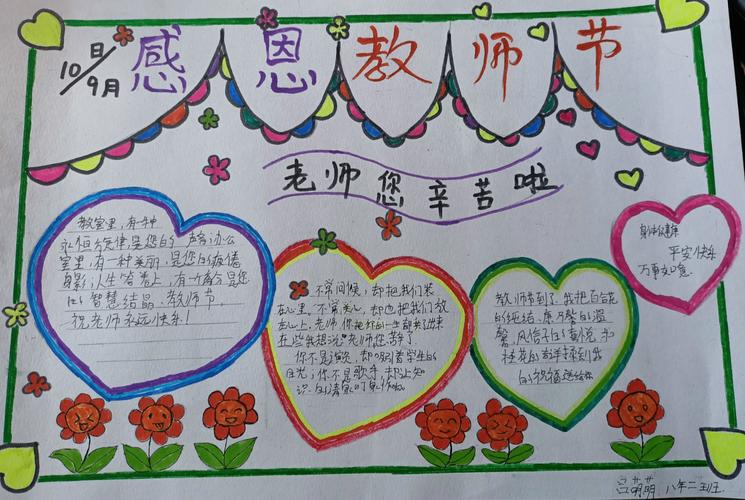 感恩教师节
10日/9月
老师您辛苦啦
教室里,有一种
永恒旋律是您的声音,办公
室里,有一种美丽,是您的疲倦
身影;人生答卷上,有一份满分是您
的智慧结晶。教师节
祝老师永远快乐!
不常问候,却把我们装
在心里,不常关心,却也把我们放
在心上。老师,你把
我想说"老师您辛苦了
你不是演员,却吸引着学生的
目光;你不是歌手,却让知
识的清泉叮咚作响
教师节到了,我把百合花
的纯洁、康乃馨的温
馨、风信子的喜悦、米
的祝福送给您
身体健康
平安快乐
万事如意
吕萌萌 八年二班